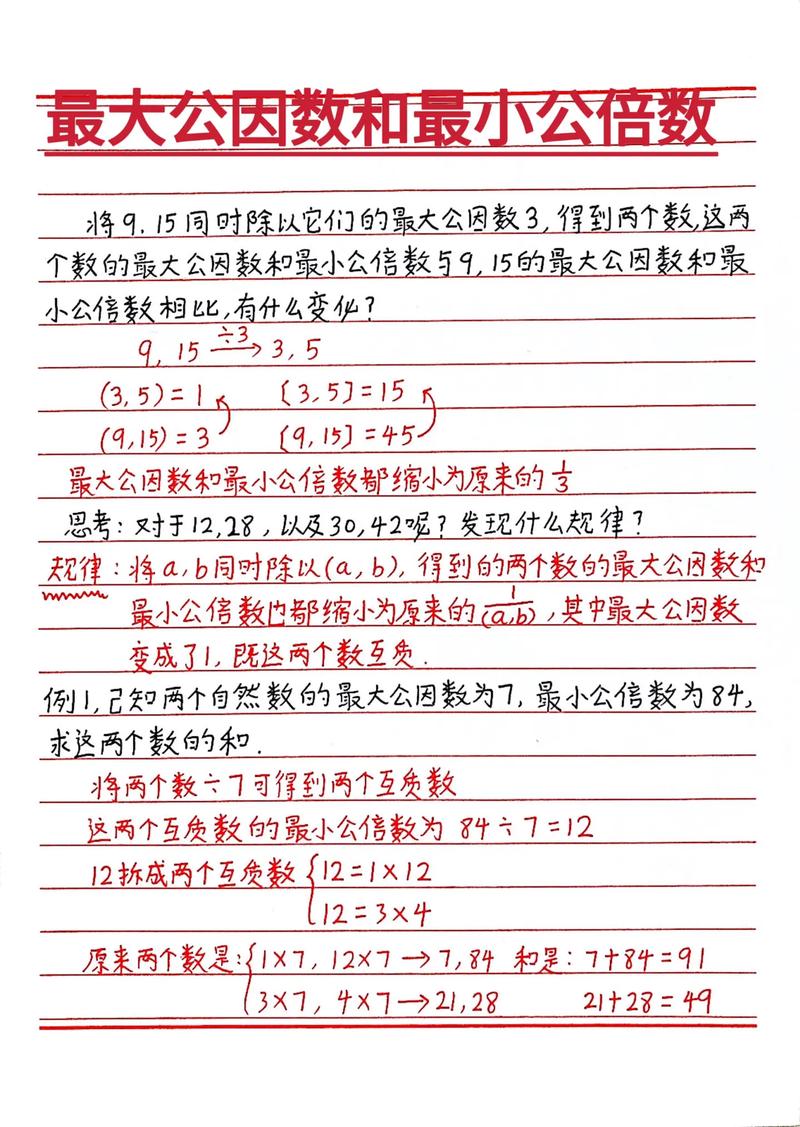 最大公因数和最小公倍数
将9,15同时除以它们的最大公因数3,得到两个数,这两
个数的最大公因数和最小公倍数与9,15的最大公因数和最
小公倍数相比,有什么变化?
9, 15 ÷3→ 3, 5
(3,5)=1 [3,5]=15
(9,15)=3 [9,15]=45
最大公因数和最小公倍数都缩小为原来的1/3
思考:对于12,28,以及30,42呢?发现什么规律?
规律:将a,b同时除以(a,b),得到的两个数的最大公因数和
最小公倍数也都缩小为原来的1/(a,b),其中最大公因数
变成了1,既这两个数互质.
例1,已知两个自然数的最大公因数为7,最小公倍数为84,
求这两个数的和.
将两个数÷7可得到两个互质数
这两个互质数的最小公倍数为 84÷7=12
12拆成两个互质数{12=1×12
12=3×4
原来两个数是:{1×7, 12×7→7,84 和是:7+84=91
3×7, 4×7→21,28 21+28=49